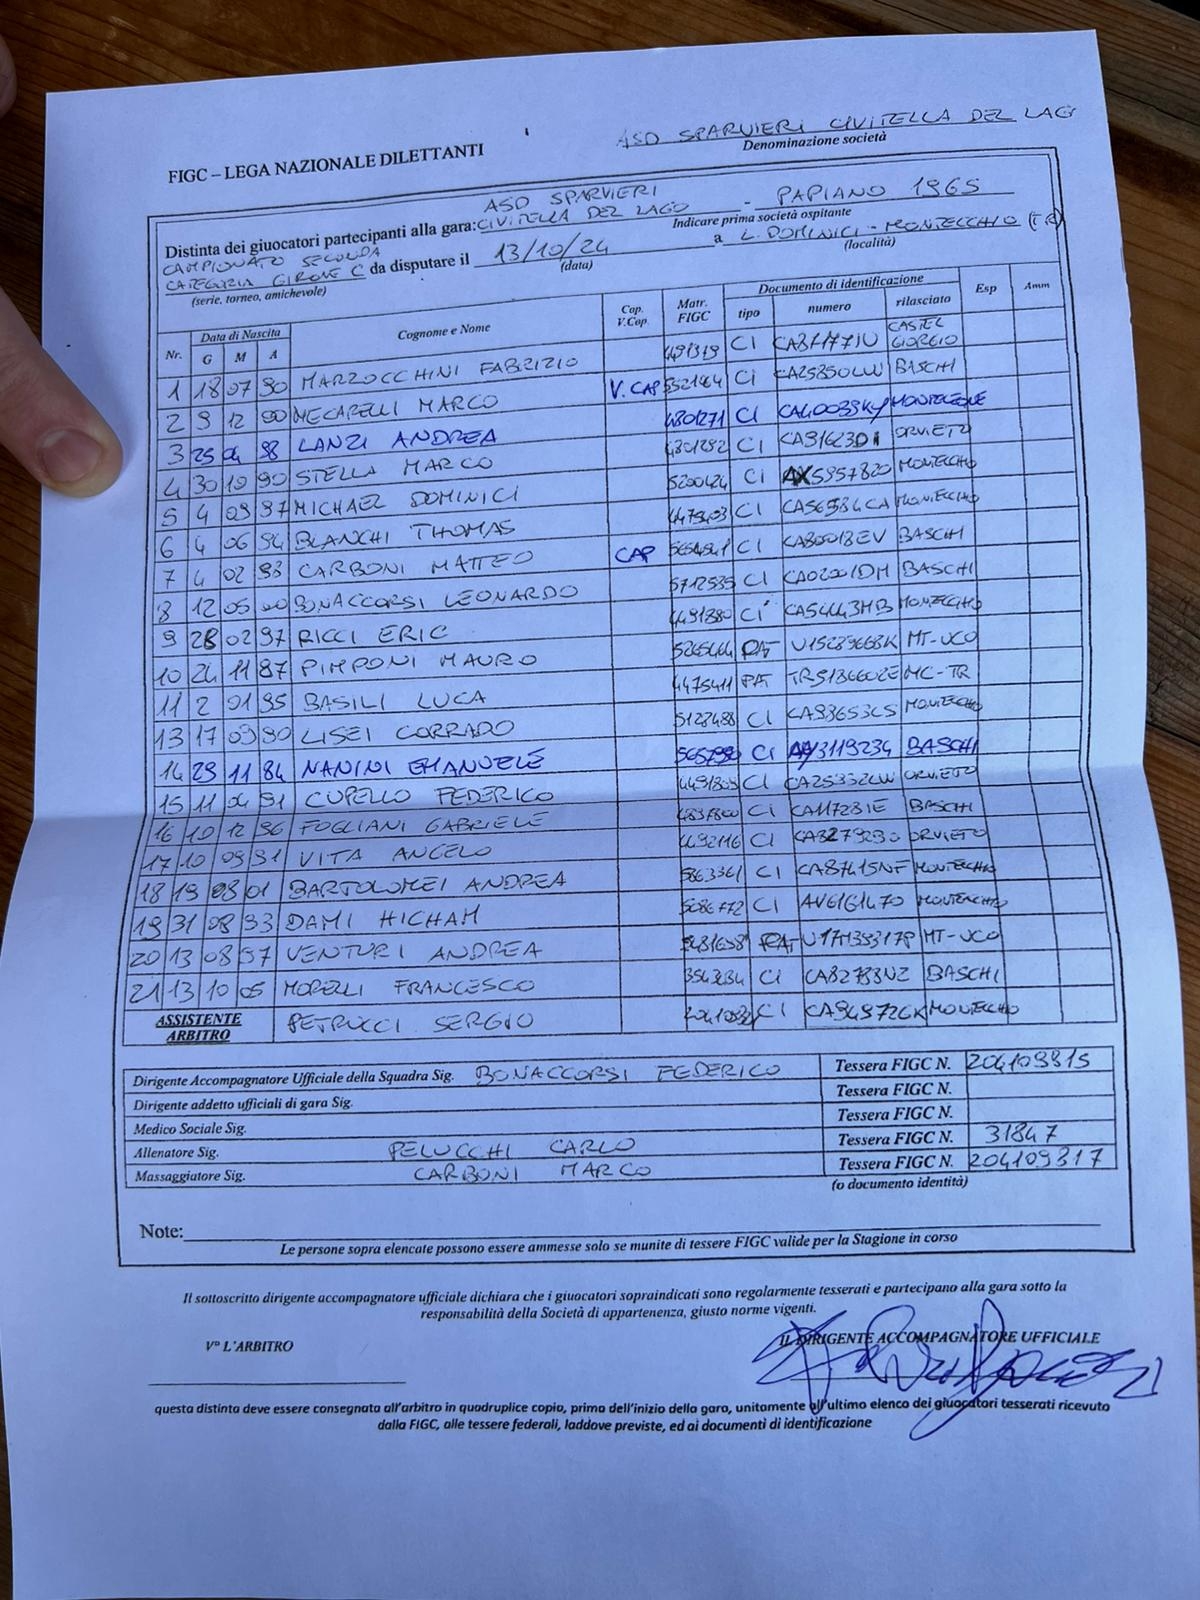 ASD SPARVIERI CIVITELLA DEL LAG
FIGC – LEGA NAZIONALE DILETTANTI
Denominazione società
ASD SPARVIERI
Distinta dei giuocatori partecipanti alla gara: CIVITELLA DEL LAGO - PAPIANO 1965
Indicare prima società ospitante
CAMPIONATO SECONDA
CATEGORIA GIRONE C da disputare il 13/10/24 a L. DOMINICI - MONTECCHIO (TR)
(serie, torneo, amichevole) (data) (località)
Nr. Data di Nascita Cognome e Nome Cap. V.Cap. Matr. FIGC Documento di identificazione Esp Amm
G M A tipo numero rilasciato
1 18 07 90 MARZOCCHINI FABRIZIO 4491319 CI CASTEL GIORGIO
2 9 12 90 MECARELLI MARCO V. CAP CI CA25850LW BASCHI
3 25 04 98 LANZI ANDREA 4801271 CI MONTELEONE
4 30 10 90 STELLA MARCO 4301292 CI ORVIETO
5 4 09 97 MICHAEL DOMINICI 5200424 CI AX5957820 MONTECCHIO
6 4 06 94 BIANCHI THOMAS 4479403 CI CA56584CA MONTECCHIO
7 4 02 93 CARBONI MATTEO CAP CI CA80018EV BASCHI
8 12 05 00 BONACCORSI LEONARDO 5712535 CI CA02001DM BASCHI
9 28 02 97 RICCI ERIC 4491880 CI CA54443MB MONTECCHIO
10 24 11 87 PIMPONI MAURO 5265464 PAT U15289668K MT-UCO
11 2 01 95 BASILI LUCA 4475411 PAT TR5136602E MC-TR
13 17 09 90 LISEI CORRADO 5123488 CI CA98653CS MONTECCHIO
14 29 11 84 NANINI EMANUELE CI AY3119234 BASCHI
15 11 04 91 CUPELLO FEDERICO 4491805 CI CA25332LW ORVIETO
16 10 12 96 FOGLIANI GABRIELE CI CA11728IE BASCHI
17 10 09 91 VITA ANGELO 4492116 CI ORVIETO
18 19 08 01 BARTOLOMEI ANDREA 5863361 CI CA87415NF MONTECCHIO
19 31 08 93 DAMI HICHAM 5086772 CI AV6161470 MONTECCHIO
20 13 08 97 VENTURI ANDREA PAT U17M35317P MT-UCO
21 13 10 05 MORELLI FRANCESCO CI CA82783NZ BASCHI
ASSISTENTE ARBITRO PETRUCCI SERGIO CI CA94972GK MONTECCHIO
Dirigente Accompagnatore Ufficiale della Squadra Sig. BONACCORSI FEDERICO Tessera FIGC N. 204109315
Dirigente addetto ufficiali di gara Sig. Tessera FIGC N.
Medico Sociale Sig. Tessera FIGC N.
Allenatore Sig. PELUCCHI CARLO Tessera FIGC N. 31847
Massaggiatore Sig. CARBONI MARCO Tessera FIGC N. 204109317
(o documento identità)
Note:
Le persone sopra elencate possono essere ammesse solo se munite di tessere FIGC valide per la Stagione in corso
Il sottoscritto dirigente accompagnatore ufficiale dichiara che i giuocatori sopraindicati sono regolarmente tesserati e partecipano alla gara sotto la
responsabilità della Società di appartenenza, giusto norme vigenti.
V° L'ARBITRO IL DIRIGENTE ACCOMPAGNATORE UFFICIALE
questa distinta deve essere consegnata all'arbitro in quadruplice copia, prima dell'inizio della gara, unitamente all'ultimo elenco dei giuocatori tesserati ricevuto
dalla FIGC, alle tessere federali, laddove previste, ed ai documenti di identificazione